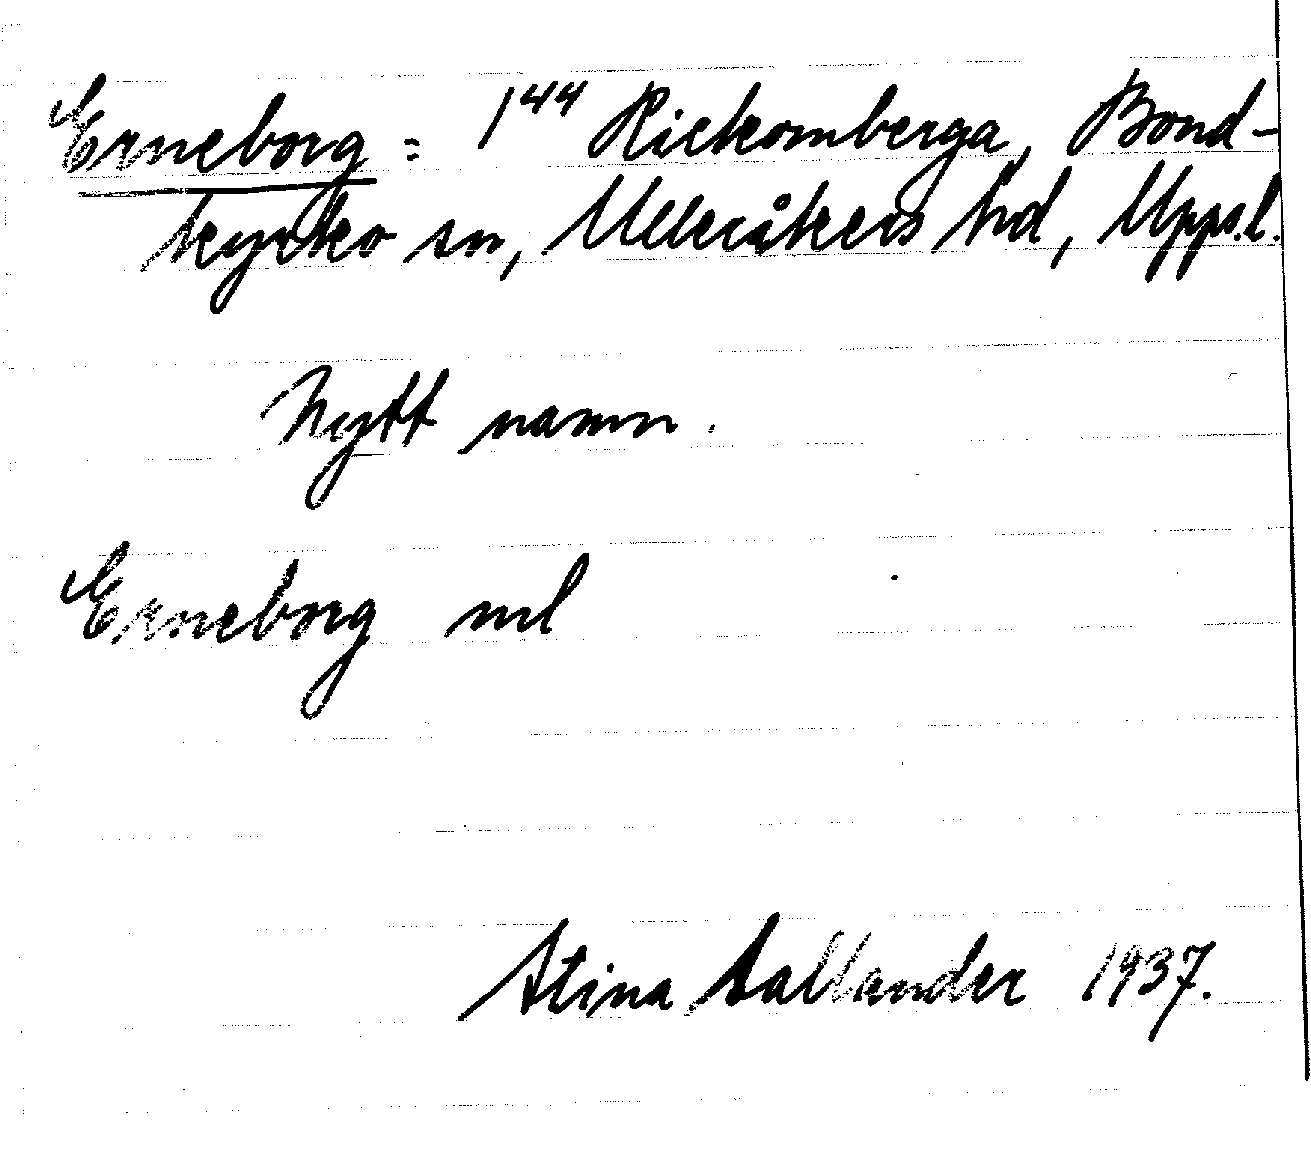 Erneborg = 1⁴⁴ Rickomberga, Bond-
kyrko sn, Ulleråkers hd, Uppl.
Nytt namn.
Erneborg ml
Stina Sallander 1937.